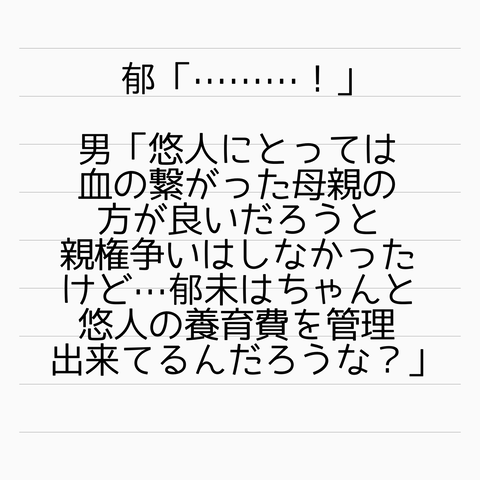 郁「………！」
男「悠人にとっては
血の繋がった母親の
方が良いだろうと
親権争いはしなかった
けど…郁未はちゃんと
悠人の養育費を管理
出来てるんだろうな？」